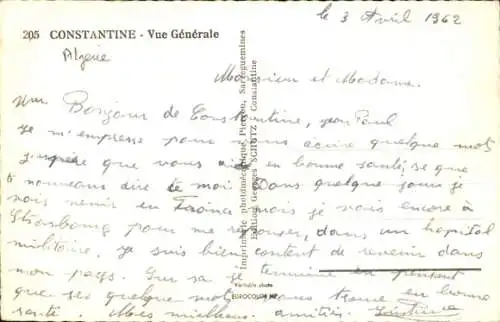 le 3 Avril 1962
205 CONSTANTINE - Vue Générale
Algérie
Monsieur et Madame.
Un Bonjour de Constantine, jean Paul
je m'empresse pour vous écrire quelque mot
j'espère que vous en bonne santé, se que
nouveaus dire te moi. Dans quelque jour je
vais venir en France mais je vais encore à
Strasbourg pour me reposer, dans un hopital
militaire, je suis bien content de revenir dans
mon pays. Sur sa je termine en pensant
que ses quelque mot vous trouve en bonne
santé. Mes meilleurs amitiés.
Imprimerie photomécanique, Pierron, Sarreguemines
Edition Georges SCHUTZ - Constantine
Véritable photo
EUROCOLOR